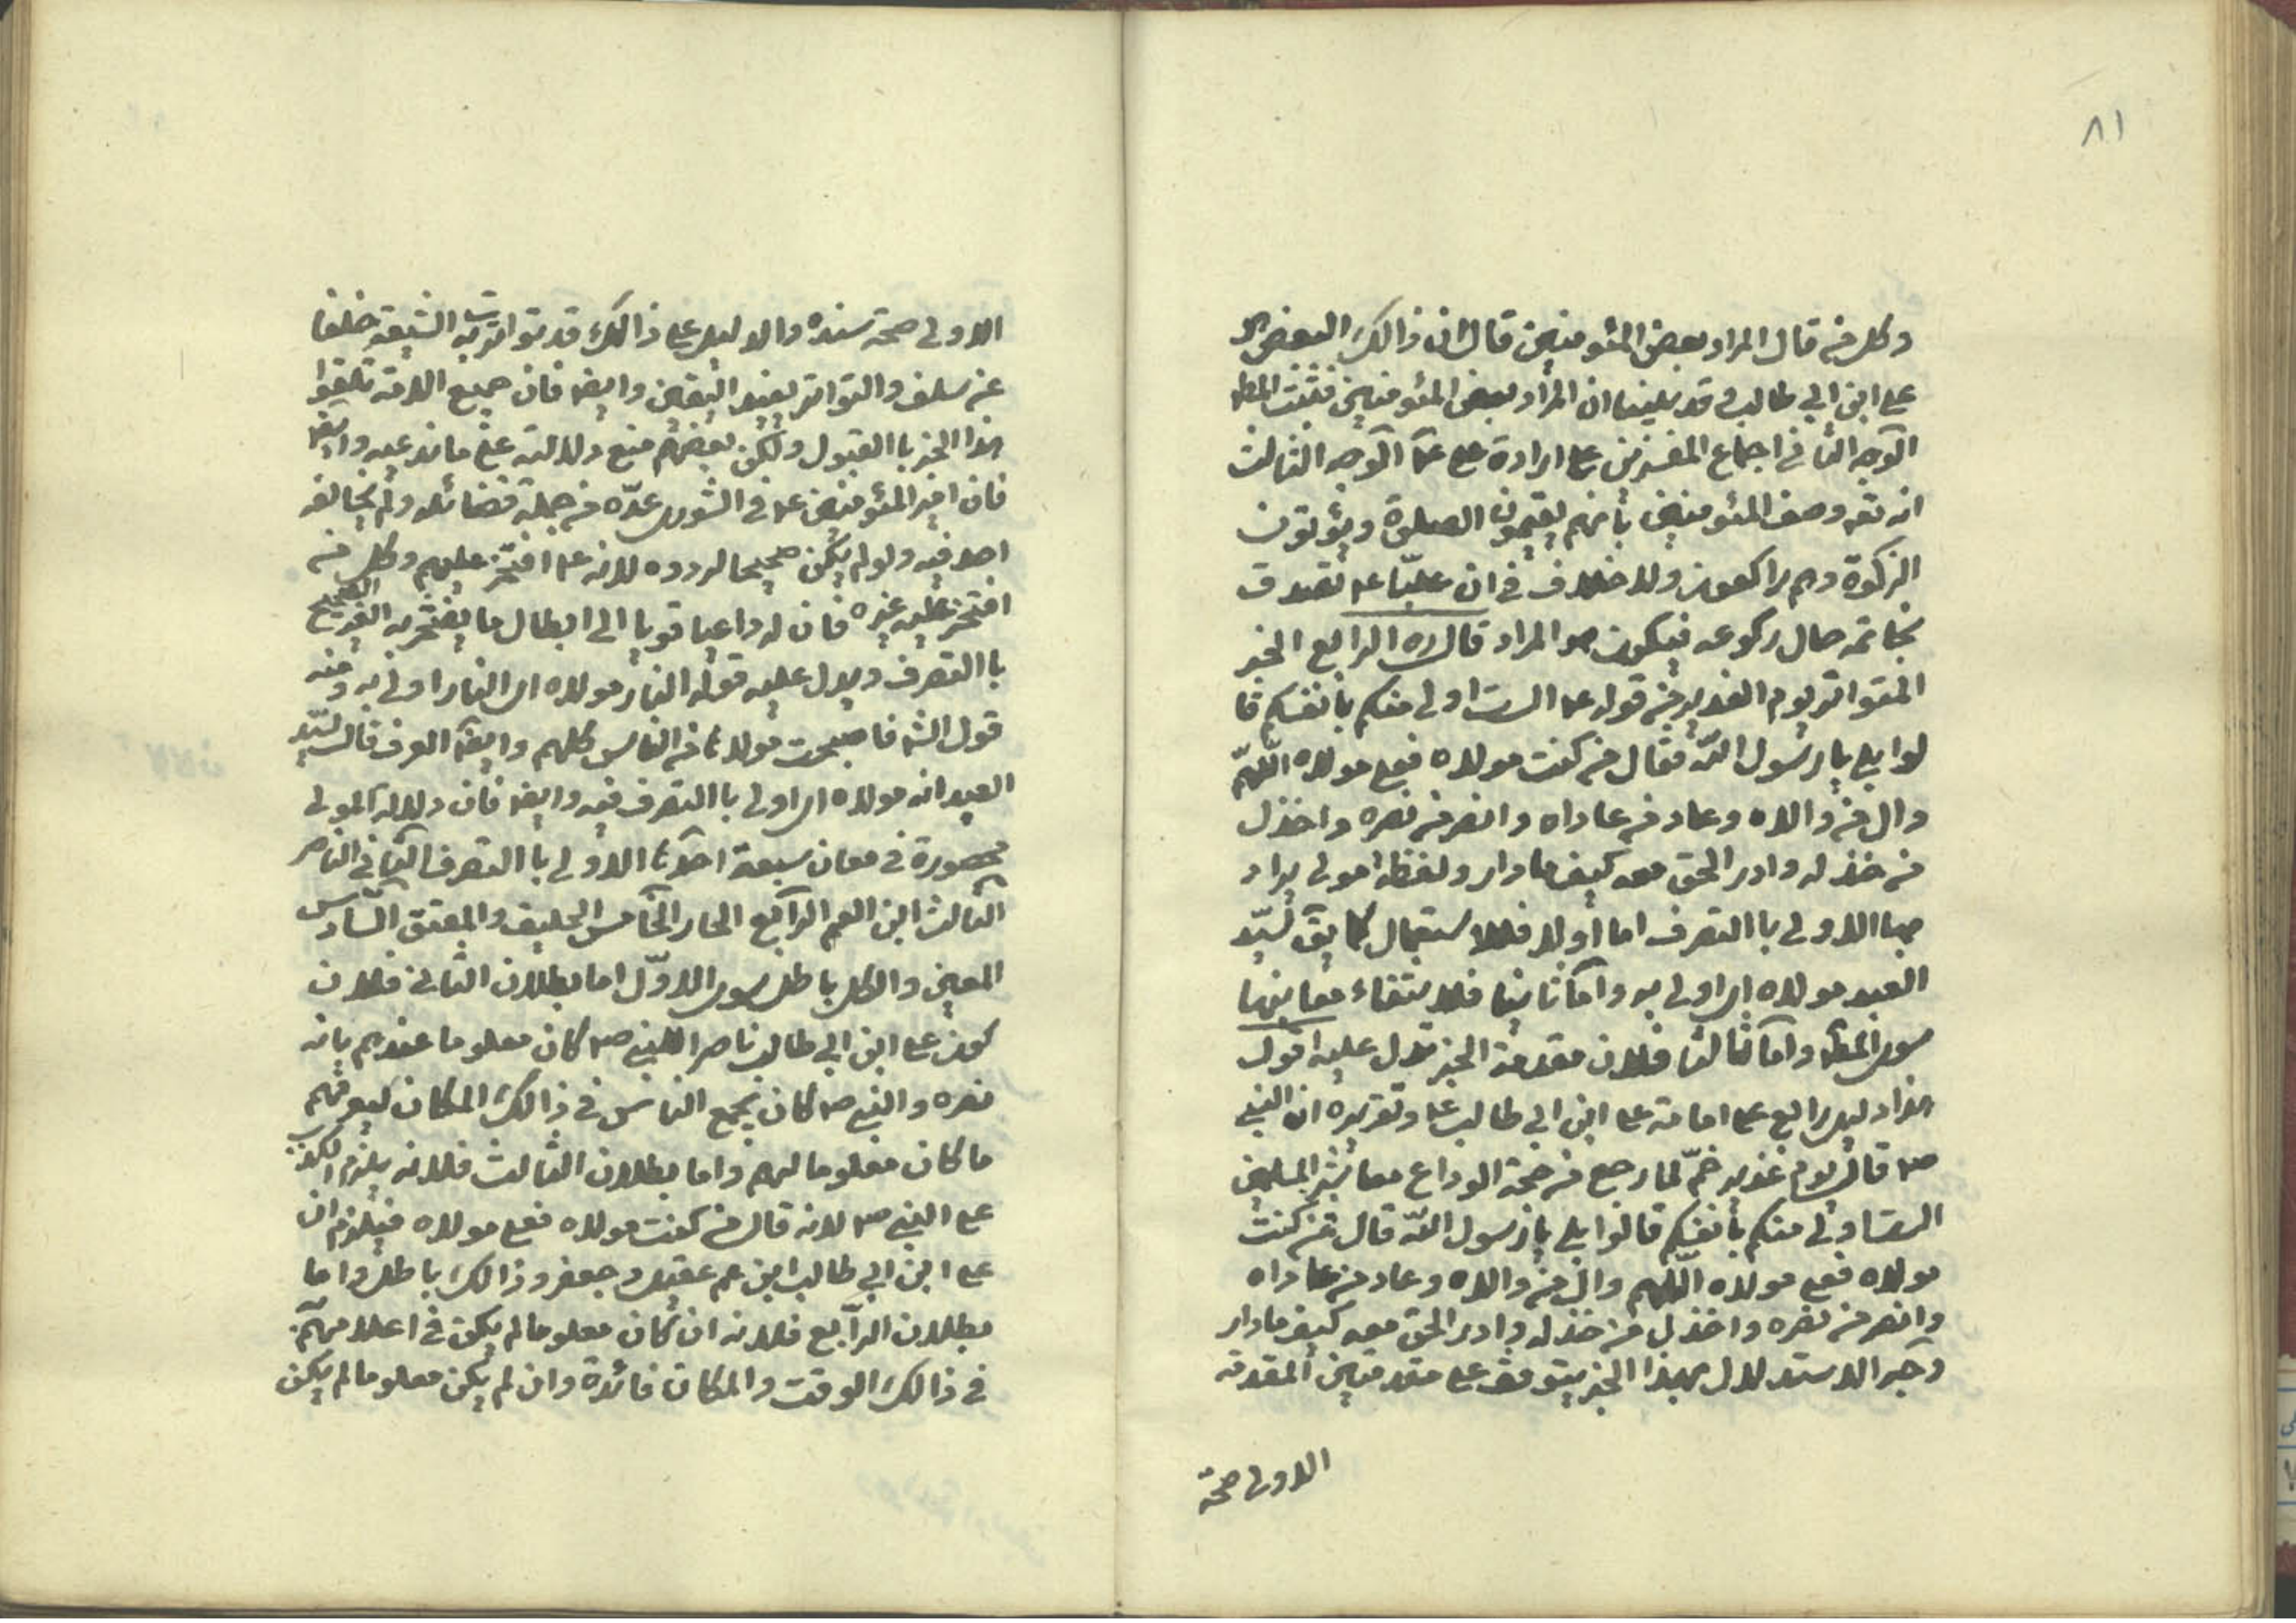 ٨١
وكل من قال المراد بعض المئومنين قال ان ذالك البعض هو
علي ابن ابي طالب وقد بينا ان المراد بعض المئومنين فثبت المط
الوجه الثاني اجماع المفسرين على ارادة علي عم الوجه الثالث
انه تعم وصف المئومنين بأنهم يقيمون الصلوة ويؤتون
الزكوة وهم راكعون ولا خلاف في ان عليّا عم تصدق
بخاتمه حال ركوعه فيكون هو المراد قال ره الرابع الخبر
المتواتر يوم الغدير من قوله عم الست اولى منكم بأنفسكم قا
لوا بلى يا رسول اللّه فقال من كنت مولاه فعلي مولاه اللّهمّ
وال من والاه وعاد من عاداه وانصر من نصره واخذل
من خذله وادر الحق معه كيف ما دار ولفظة مولى يراد
بها الاولى باالتصرف اما اولا فللاستعمال كما يق لسيّد
العبد مولاه اى اولى به واما ثانيا فلانتفاء معانيها
سوى المط واما ثالثا فلان مقدمة الخبر تدل عليه اقول
هذا دليل رابع على امامة علي ابن ابي طالب عم وتقريره ان النبي
صم قال يوم غدير خمّ لما رجع من حجة الوداع معاشر المسلمين
الست اولى منكم بأنفسكم قالوا بلى يا رسول اللّه قال فمن كنت
مولاه فعلي مولاه اللّهم وال من والاه وعاد من عاداه
وانصر من نصره واخذل من خذله وادر الحق معه كيف ما دار
وجه الاستدلال بهذا الخبر يتوقف على مقدمتين المقدمة
الاولى صحة
الاولى صحة سنده والدليل على ذالك قد تواترت به الشيعة خلفا
عن سلف والتواتر يفيد اليقين وايضا فان جميع الامة تلقوا
هذا الخبر باالقبول ولكن بعضهم منع دلالته على ما ندعيه وايضا
فان امير المئومنين عم في الشورى عدّه من جملة فضائله ولم يخالفه
احد فيه ولو لم يكن صحيحا لردوه لانه عم افتخر عليهم وكل من
افتخر عليه غيره فان له داعيا قويا الى ابطال ما يفتخر به الغير
باالتصرف ويدل عليه قوله النار مولاه اى النار اولى به ومنه
قول الشا فاصبحت مولاها من الناس كلهم وايضا العرف قال لسيّد
العبد انه مولاه اى اولى باالتصرف فيه وايضا فان دلالة المولى
محصورة في معان سبعة احدها الاولى باالتصرف الثاني الناصر
الثالث ابن العم الرابع الجار الخامس الحليف والمعتق السّادس
المعين والكل باطل سوى الاوّل اما بطلان الثاني فلان
كون علي ابن ابي طالب ناصر اللنبي صم كان معلوما عندهم بانه
نصره والنبي صم كان يجمع الناس في ذالك المكان ليعرفهم
ما كان معلوما لهم واما بطلان الثالث فلانه يلزم الكذب
على النبي صم لانه قال من كنت مولاه فعلي مولاه فيلزم ان
علي ابن ابي طالب ابن عم عقيل وجعفر وذالك باطل واما
بطلان الرابع فلانه ان كان معلوما لم يكن في اعلامهم
في ذالك الوقت والمكان فائدة وان لم يكن معلوما لم يكن